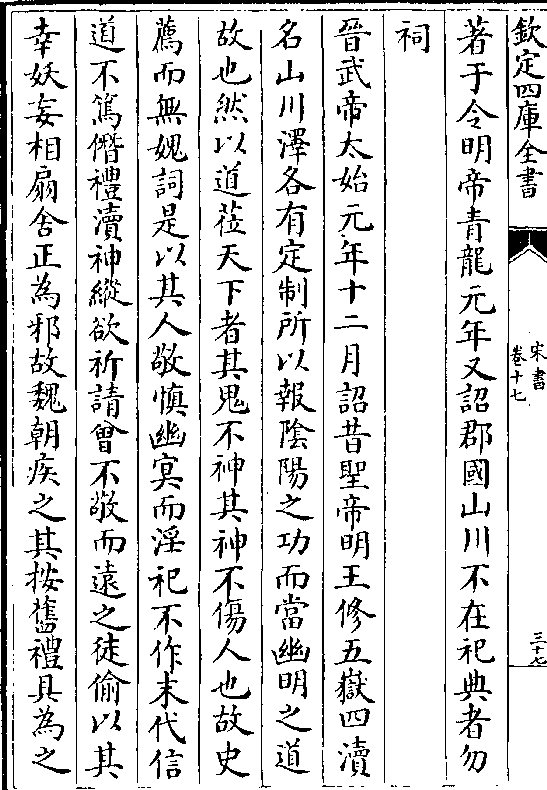 欽定四庫全書
宋書
卷十七
三十七
著于令明帝青龍元年又詔郡國山川不在祀典者勿
祠
晉武帝太始元年十二月詔昔聖帝明王修五嶽四瀆
名山川澤各有定制所以報陰陽之功而當幽明之道
故也然以道莅天下者其鬼不神其神不傷人也故史
薦而無媿詞是以其人敬慎幽冥而淫祀不作末代信
道不篤僭禮瀆神縱欲祈請曾不敬而遠之徒偷以其
幸妖妄相扇舍正為邪故魏朝疾之其按舊禮具為之